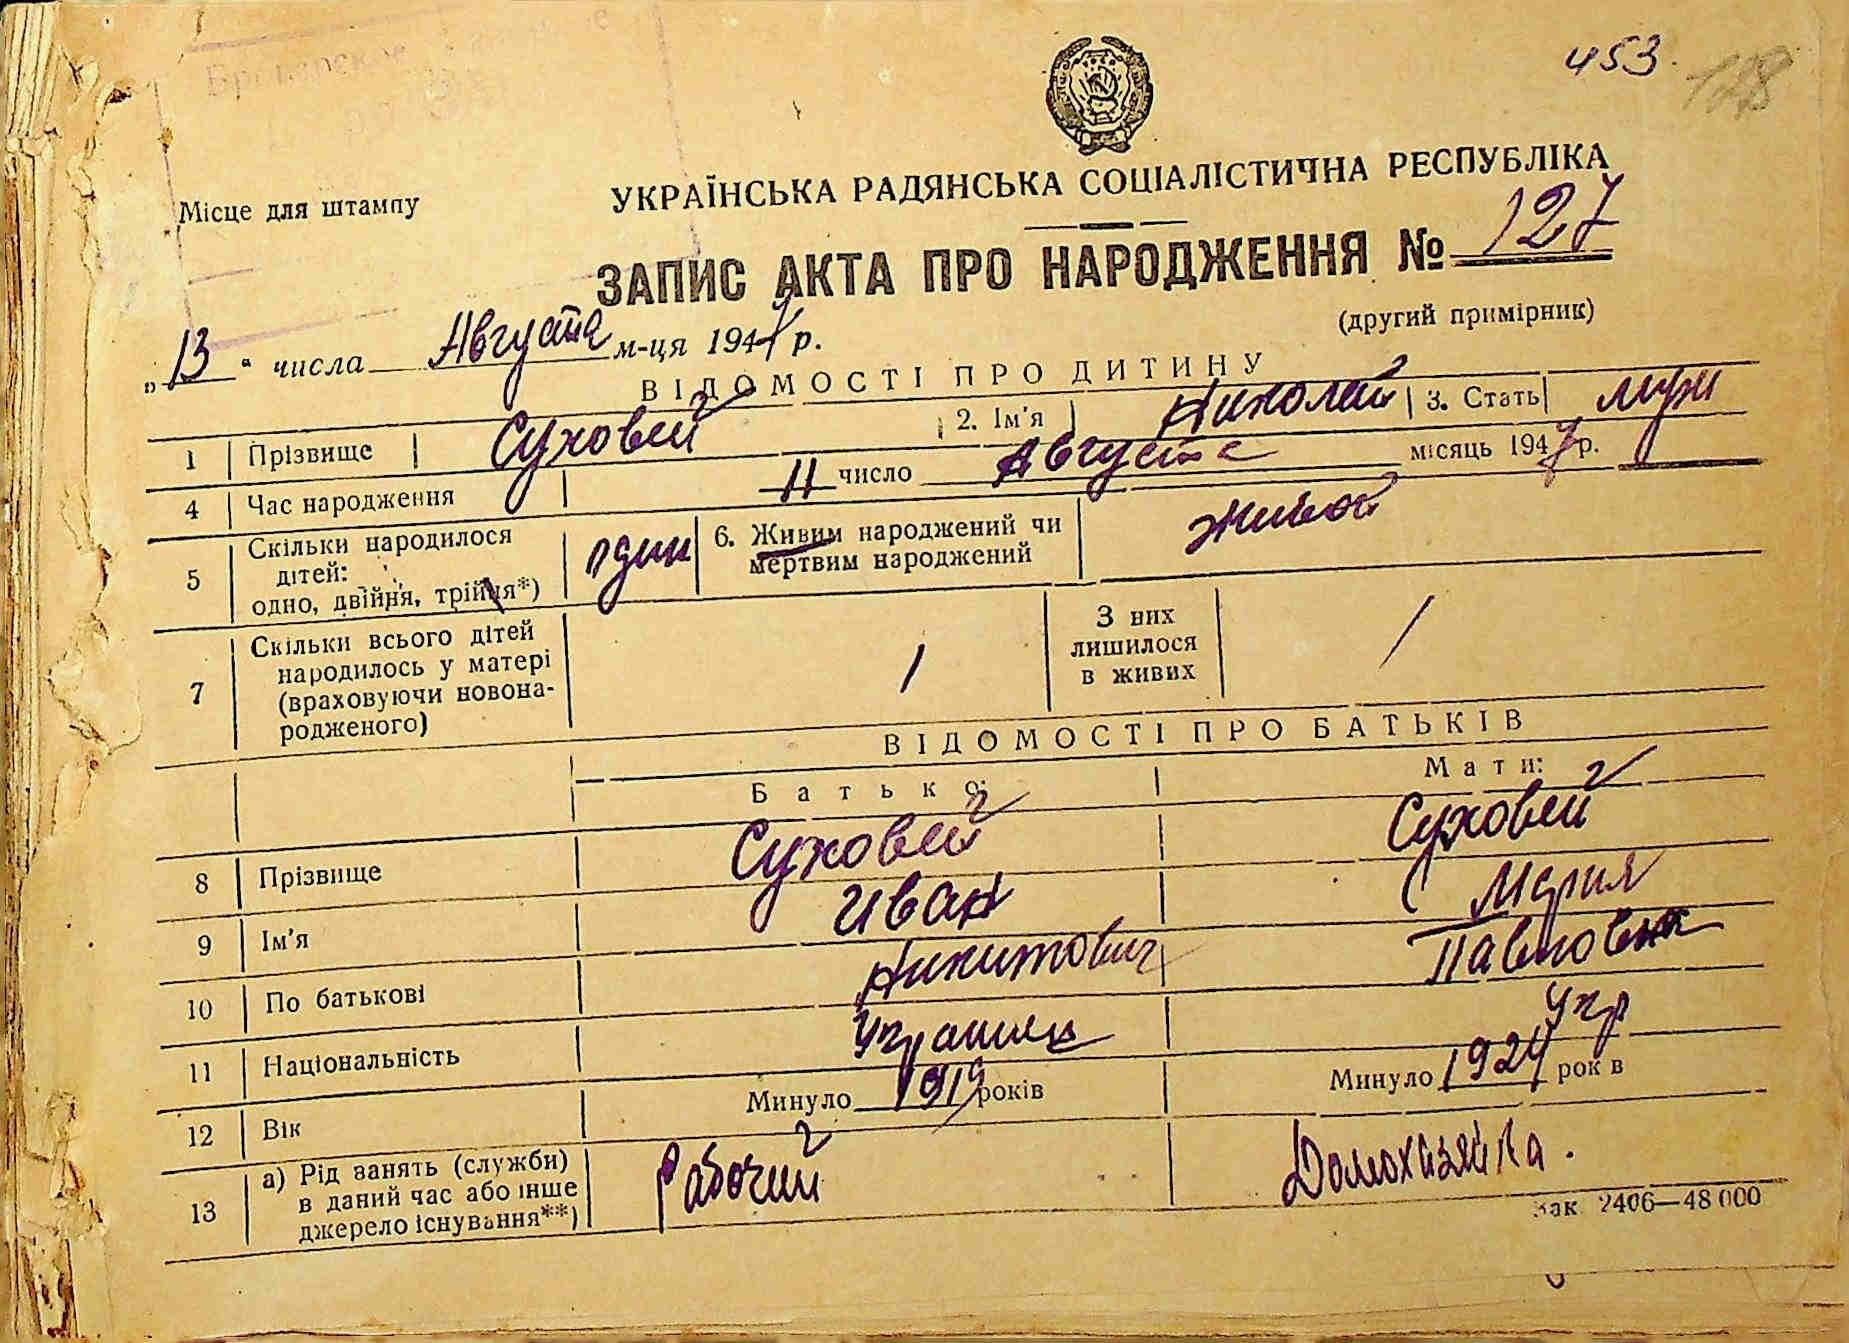 453. 128
Місце для штампу
УКРАЇНСЬКА РАДЯНСЬКА СОЦІАЛІСТИЧНА РЕСПУБЛІКА
ЗАПИС АКТА ПРО НАРОДЖЕННЯ № 127
(другий примірник)
„13“ числа Августа м-ця 1947 р.
ВІДОМОСТІ ПРО ДИТИНУ
1 Прізвище Суховей 2. Ім'я Николай 3. Стать муж
4 Час народження 11 число Августа місяць 1947 р.
5 Скільки народилося дітей: одно, двійня, трійня*) один 6. Живим народжений чи мертвим народжений живой
7 Скільки всього дітей народилось у матері (враховуючи новонародженого) 1 З них лишилося в живих 1
ВІДОМОСТІ ПРО БАТЬКІВ
Батько: Мати:
8 Прізвище Суховей Суховей
9 Ім'я Иван Мария
10 По батькові Никитович Павловна
11 Національність Украинец Укр
12 Вік Минуло 1919 років Минуло 1924 років
13 а) Рід занять (служби) в даний час або інше джерело існування**) Рабочий Домохазяйка.
Зак. 2406—48 000